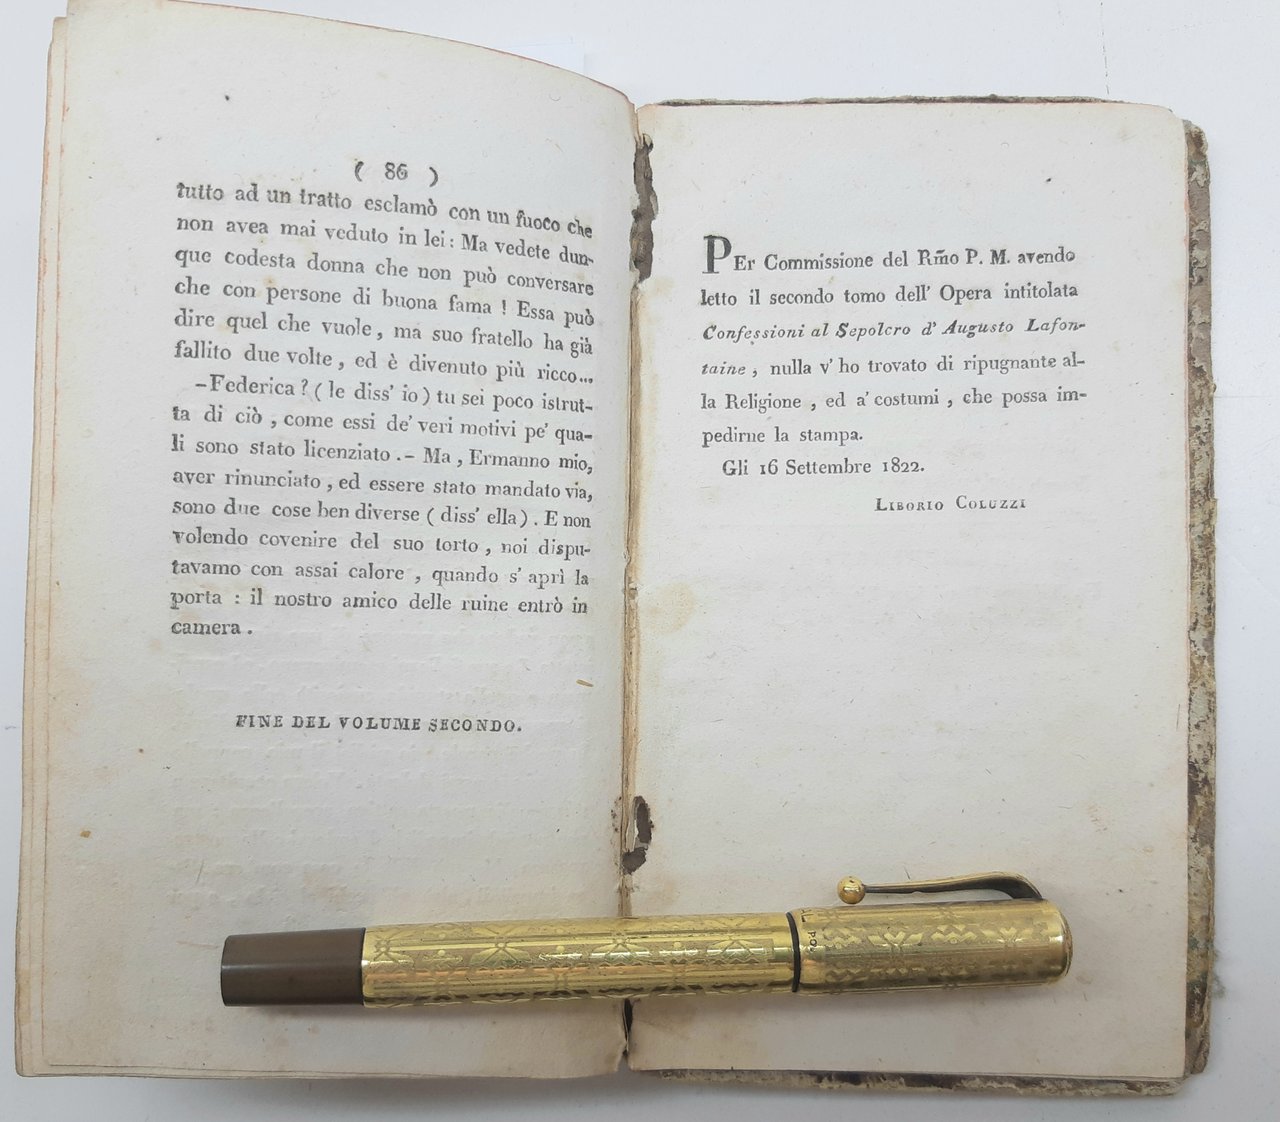 ( 86 )
tutto ad un tratto esclamò con un fuoco che
non avea mai veduto in lei : Ma vedete dun-
que codesta donna che non può conversare
che con persone di buona fama ! Essa può
dire quel che vuole , ma suo fratello ha già
fallito due volte , ed è divenuto più ricco...
–Federica ? ( le diss' io ) tu sei poco istrut-
ta di ciò , come essi de' veri motivi pe' qua-
li sono stato licenziato . – Ma , Ermanno mio,
aver rinunciato , ed essere stato mandato via,
sono due cose ben diverse ( diss' ella ) . E non
volendo covenire del suo torto , noi dispu-
tavamo con assai calore , quando s' aprì la
porta : il nostro amico delle ruine entrò in
camera .
FINE DEL VOLUME SECONDO.
PEr Commissione del Rm̃o P. M. avendo
letto il secondo tomo dell' Opera intitolata
Confessioni al Sepolcro d' Augusto Lafon-
taine , nulla v' ho trovato di ripugnante al-
la Religione , ed a' costumi , che possa im-
pedirne la stampa.
Gli 16 Settembre 1822.
LIBORIO COLUZZI